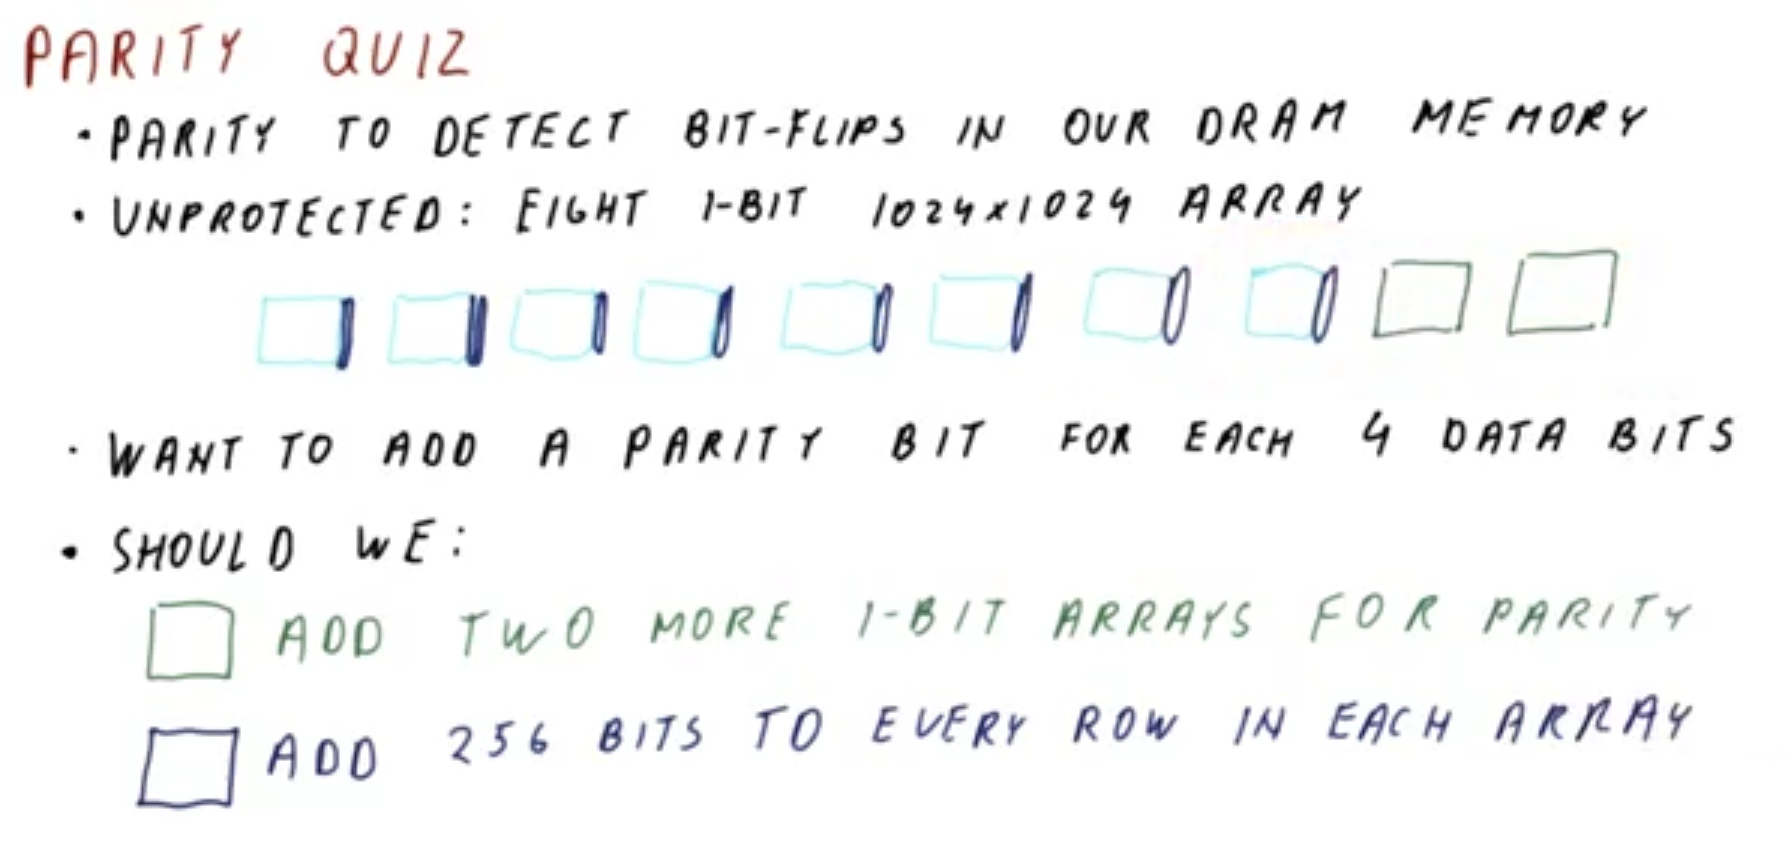 PARITY QUIZ
• PARITY TO DETECT BIT-FLIPS IN OUR DRAM MEMORY
• UNPROTECTED: EIGHT 1-BIT 1024x1024 ARRAY
• WANT TO ADD A PARITY BIT FOR EACH 4 DATA BITS
• SHOULD WE:
ADD TWO MORE 1-BIT ARRAYS FOR PARITY
ADD 256 BITS TO EVERY ROW IN EACH ARRAY